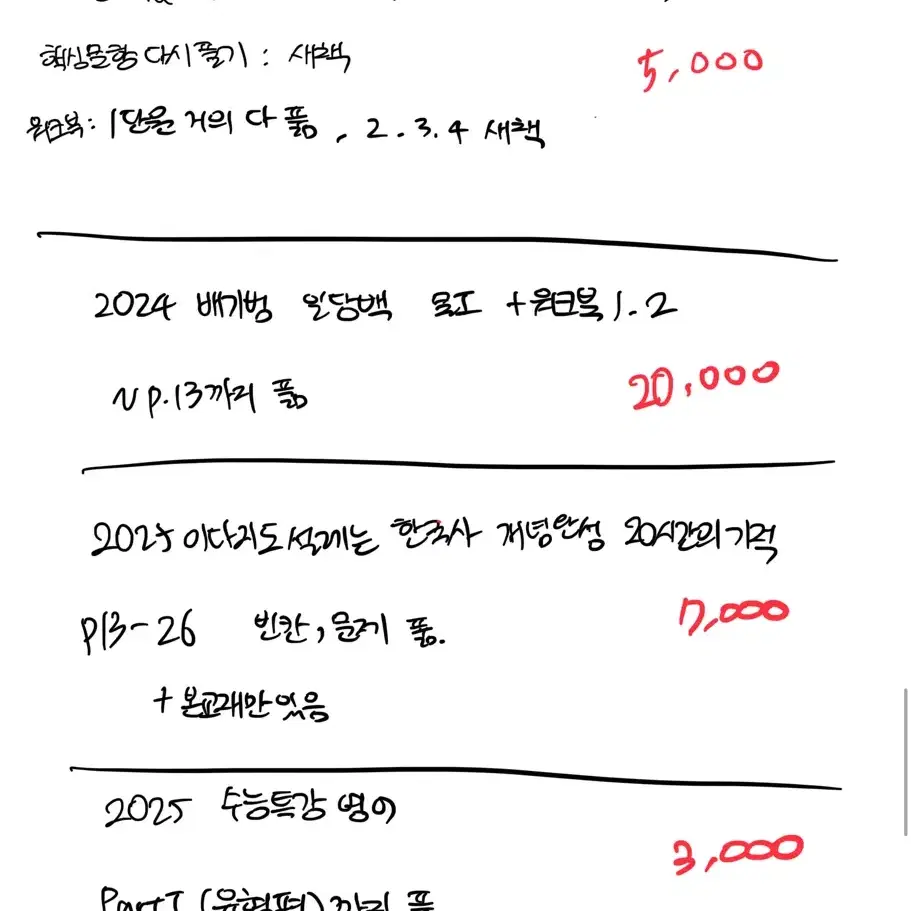 핵심문항 다시풀기 : 새책 5,000
워크북 : 1단원 거의 다 풂, 2.3.4 새책
2024 배기범 일당백 물I + 워크북 1.2
~p.13까지 풂 20,000
2025 이다지도 설레는 한국사 개념완성 20시간의 기적
p13-26 빈칸, 문제 풂. 7,000
+ 본교재만 있음
2025 수능특강 영어
3,000
Part I (유형편)까지 풂